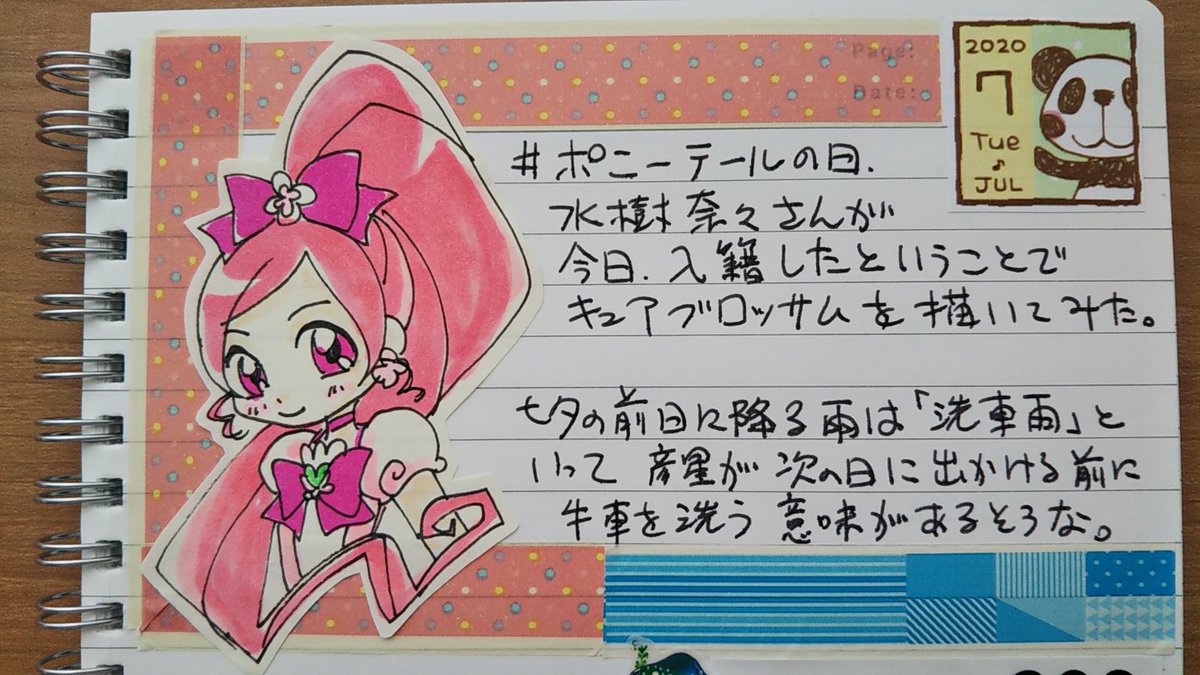 Page:
Date:
2020
7
Tue
JUL
#ポニーテールの日.
水樹奈々さんが
今日.入籍したということで
キュアブロッサムを描いてみた。
七夕の前日に降る雨は「洗車雨」と
いって彦星が次の日に出かける前に
牛車を洗う意味があるそうな。